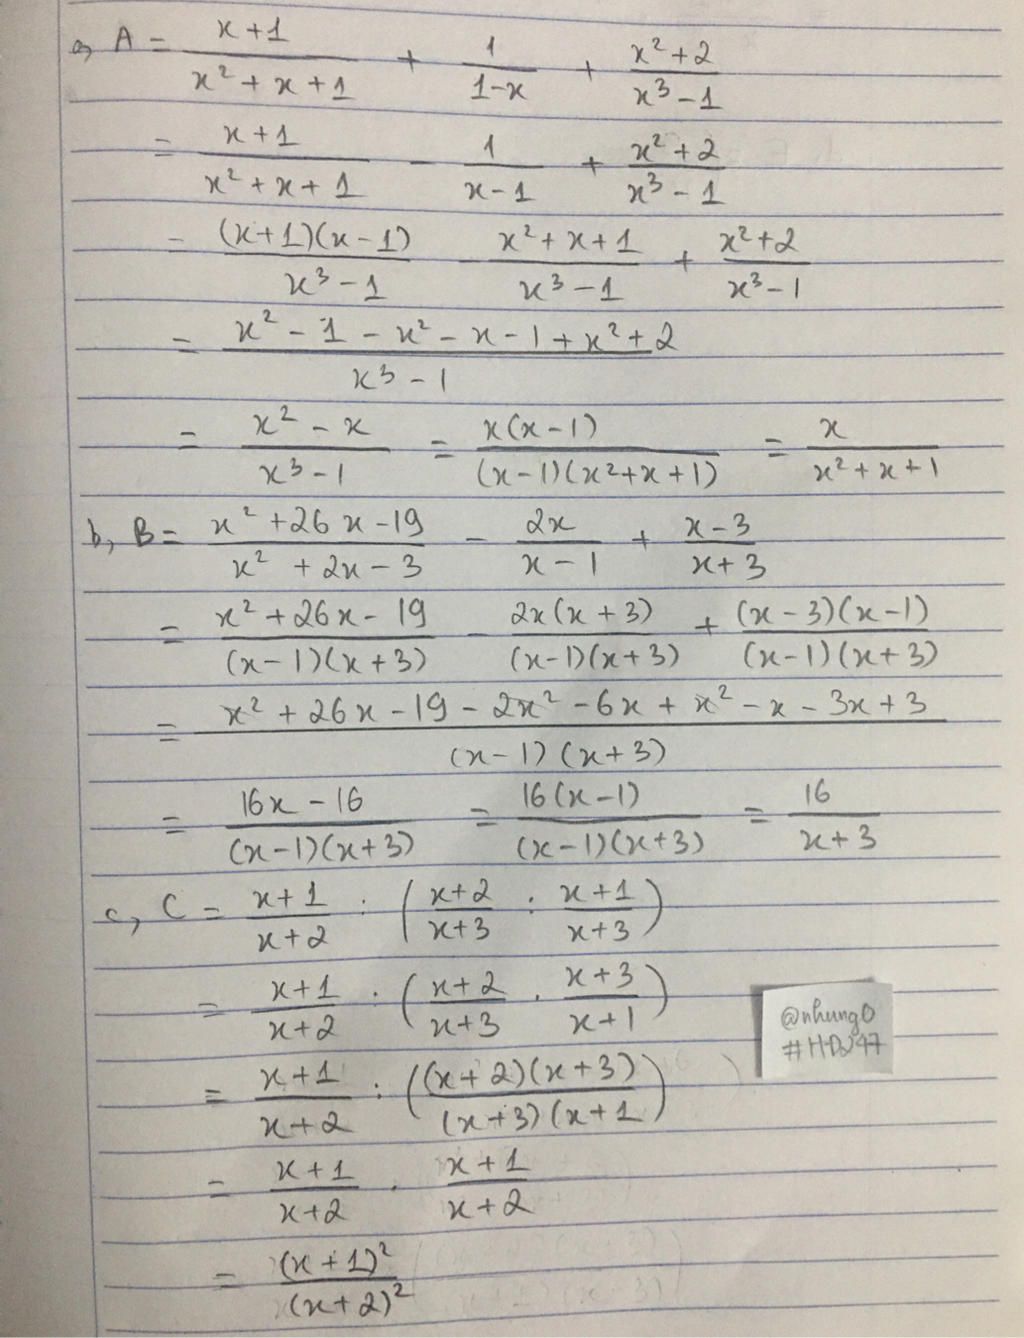 a, A = (x+1)/(x²+x+1) + 1/(1-x) + (x²+2)/(x³-1)
= (x+1)/(x²+x+1) - 1/(x-1) + (x²+2)/(x³-1)
= (x+1)(x-1)/(x³-1) - (x²+x+1)/(x³-1) + (x²+2)/(x³-1)
= (x²-1-x²-x-1+x²+2)/(x³-1)
= (x²-x)/(x³-1) = x(x-1)/((x-1)(x²+x+1)) = x/(x²+x+1)
b, B = (x²+26x-19)/(x²+2x-3) - 2x/(x-1) + (x-3)/(x+3)
= (x²+26x-19)/((x-1)(x+3)) - 2x(x+3)/((x-1)(x+3)) + (x-3)(x-1)/((x-1)(x+3))
= (x²+26x-19-2x²-6x+x²-x-3x+3)/((x-1)(x+3))
= (16x-16)/((x-1)(x+3)) = 16(x-1)/((x-1)(x+3)) = 16/(x+3)
c, C = (x+1)/(x+2) : ((x+2)/(x+3) : (x+1)/(x+3))
= (x+1)/(x+2) : ((x+2)/(x+3) . (x+3)/(x+1))
@nhung0
#HDW47
= (x+1)/(x+2) : ((x+2)(x+3)/((x+3)(x+1)))
= (x+1)/(x+2) . (x+1)/(x+2)
= (x+1)²/(x+2)²